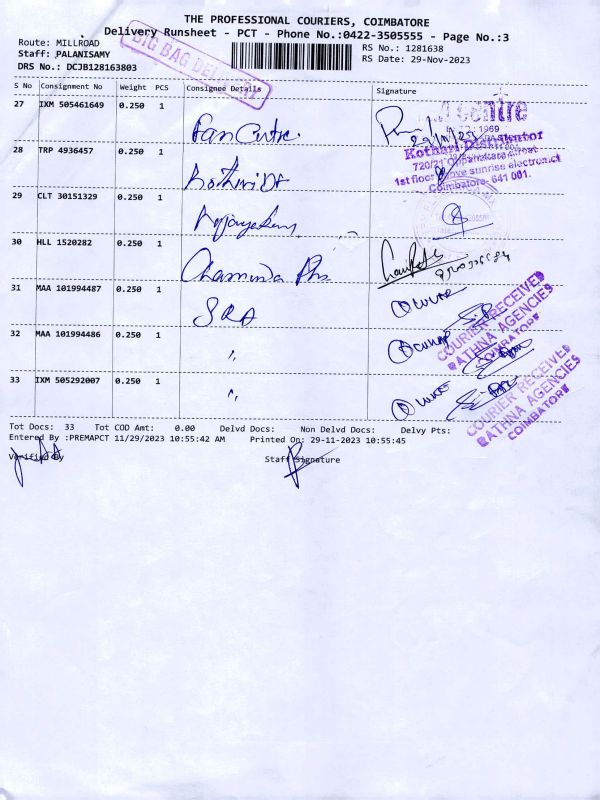 THE PROFESSIONAL COURIERS, COIMBATORE
Delivery Runsheet - PCT - Phone No.:0422-3505555 - Page No.:3
Route: MILLROAD
Staff: PALANISAMY
DRS No.: DCJB128163803
BIG BAG DELIVERY
RS No.: 1281638
RS Date: 29-Nov-2023
S No Consignment No Weight PCS Consignee Details Signature
27 IXM 505461649 0.250 1
Fan Centre
28 TRP 4936457 0.250 1
Kothari
29 CLT 30151329 0.250 1
30 HLL 1520282 0.250 1
31 MAA 101994487 0.250 1
SRA
32 MAA 101994486 0.250 1
"
33 IXM 505292007 0.250 1
"
centre
1969
Kothari
1st floor, Above sunrise electron.ct
Coimbatore- 641 001.
COURIER RECEIVED
RATHNA AGENCIES
COIMBATORE
COURIER RECEIVED
RATHNA AGENCIES
COIMBATORE
Tot Docs: 33 Tot COD Amt: 0.00 Delvd Docs: Non Delvd Docs: Delvy Pts:
Entered By :PREMAPCT 11/29/2023 10:55:42 AM Printed On: 29-11-2023 10:55:45
Verified By Staff Signature